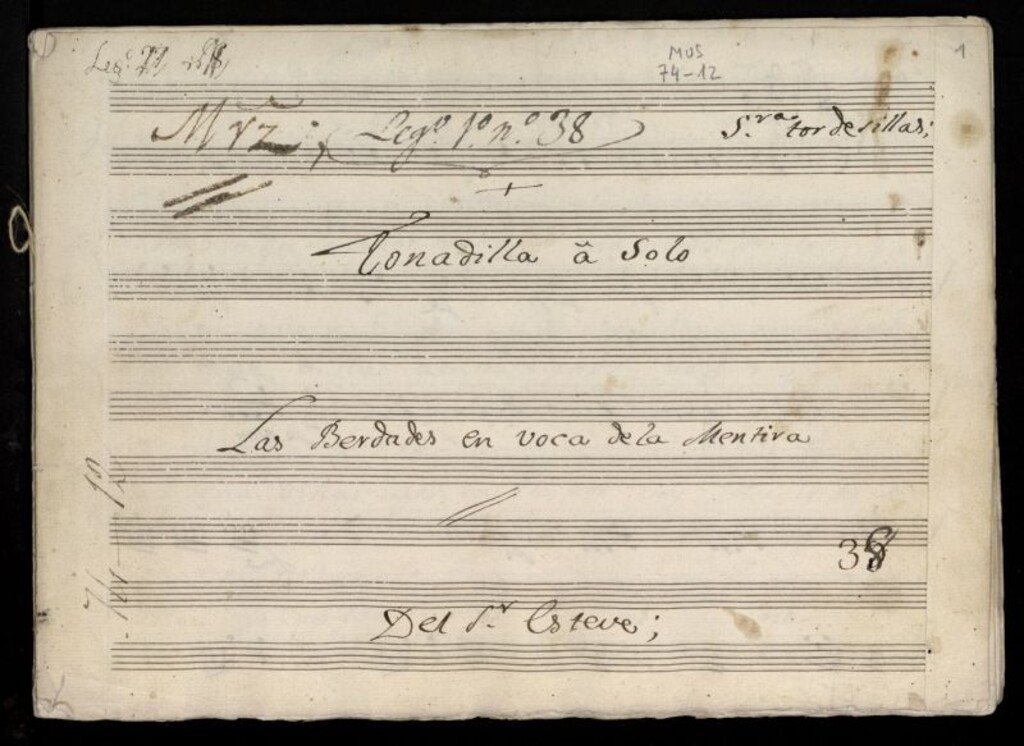 MUS
74-12
1
Leg.º 1.º n.º 38
S.ra tordesillas;
Tonadilla â Solo
Las Berdades en voca de la Mentira
38
Del S.r Esteve;